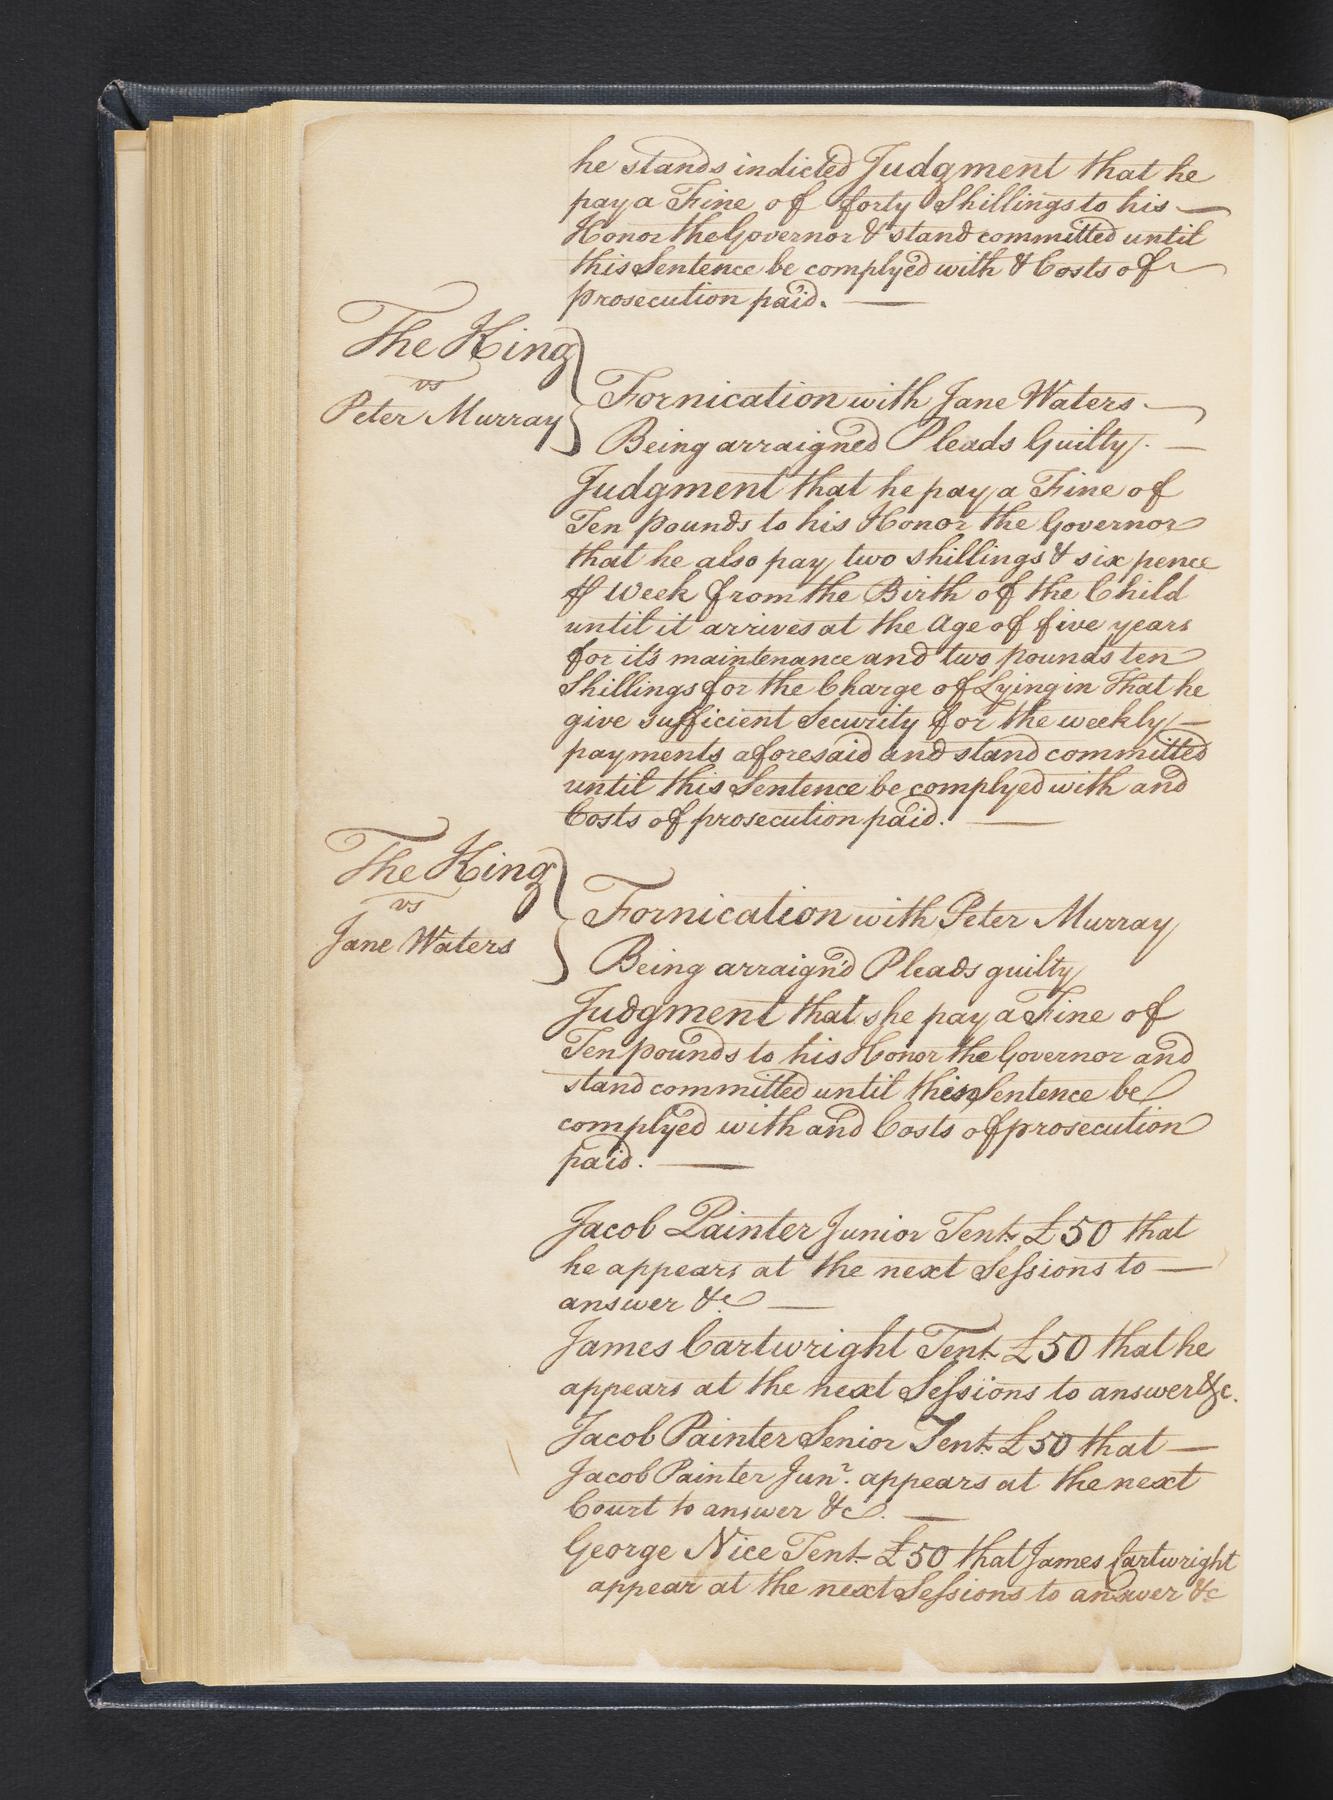 he stands indicted Judgment that he
pay a Fine of forty Shillings to his —
Honor the Governor & stand committed until
this Sentence be complyed with & Costs of
prosecution paid. —
The King
vs
Peter Murray
Fornication with Jane Waters —
Being arraigned Pleads Guilty. —
Judgment that he pay a Fine of
Ten pounds to his Honor the Governor
that he also pay two shillings & six pence
⅌ Week from the Birth of the Child
until it arrives at the Age of five years
for it's maintenance and two pounds ten
Shillings for the Charge of Lying in That he
give sufficient Security for the weekly —
payments aforesaid and stand committed
until this Sentence be complyed with and
Costs of prosecution paid. —
The King
vs
Jane Waters
Fornication with Peter Murray
Being arraign'd Pleads guilty
Judgment that she pay a Fine of
Ten pounds to his Honor the Governor and
stand committed until this Sentence be
complyed with and Costs of prosecution
paid. —
Jacob Painter Junior Tent £50 that
he appears at the next Sessions to —
answer &c —
James Cartwright Tent £50 that he
appears at the next Sessions to answer &c.
Jacob Painter Senior Tent £50 that —
Jacob Painter Junr. appears at the next
Court to answer &c. —
George Nice Tent £50 that James Cartwright
appear at the next Sessions to answer &c